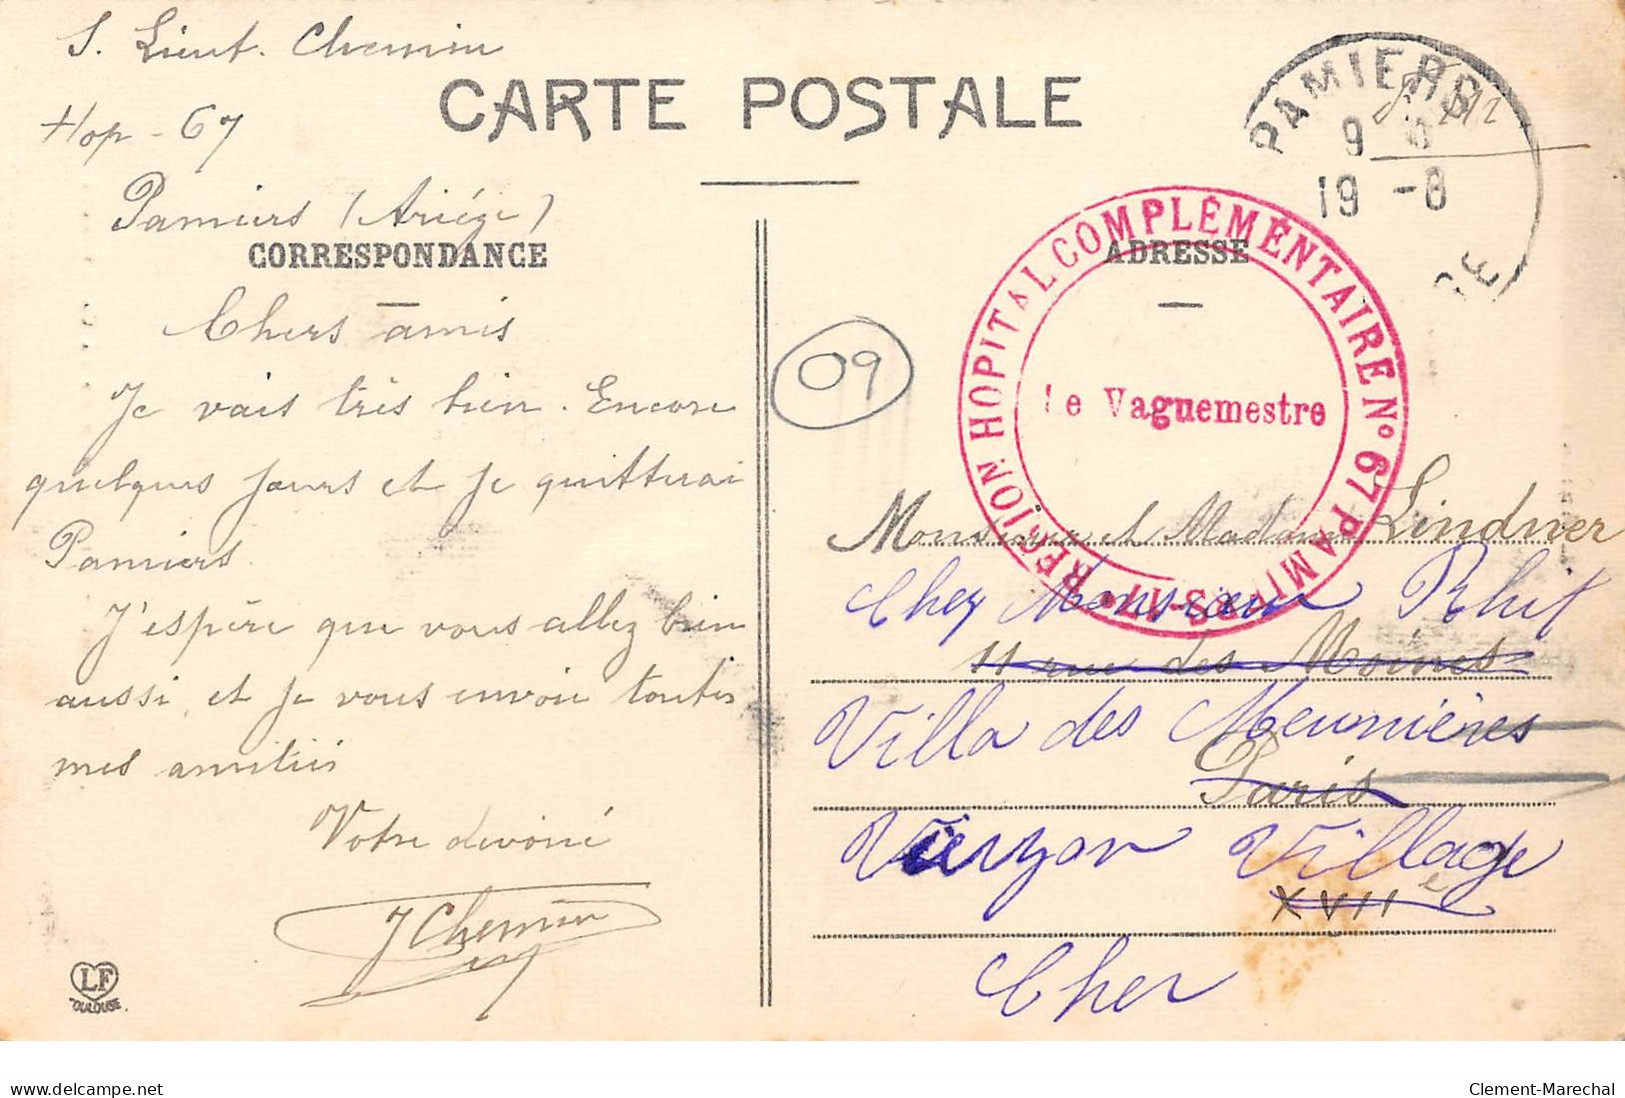 S. Lieut. Chemin
Hop - 67
Pamiers (Ariége)
CARTE POSTALE
CORRESPONDANCE
Chers amis
Je vais très bien. Encore
quelques jours et je quitterai
Pamiers.
J'espère que vous allez bien
aussi, et je vous envoie toutes
mes amitiés
Votre dévoué
J Chemin
LF
TOULOUSE
PAMIERS
9
19 -8
ADRESSE
09
HOPITAL COMPLÉMENTAIRE N° 67 PAMIERS-17e REGION
le Vaguemestre
Monsieur et Madame Lindner
Chez Monsieur Rhit
11 rue des Moines
Villa des Meunières
Paris
Vierzon Village
XVII e
Cher
delcampe.net
Clement-Marechal